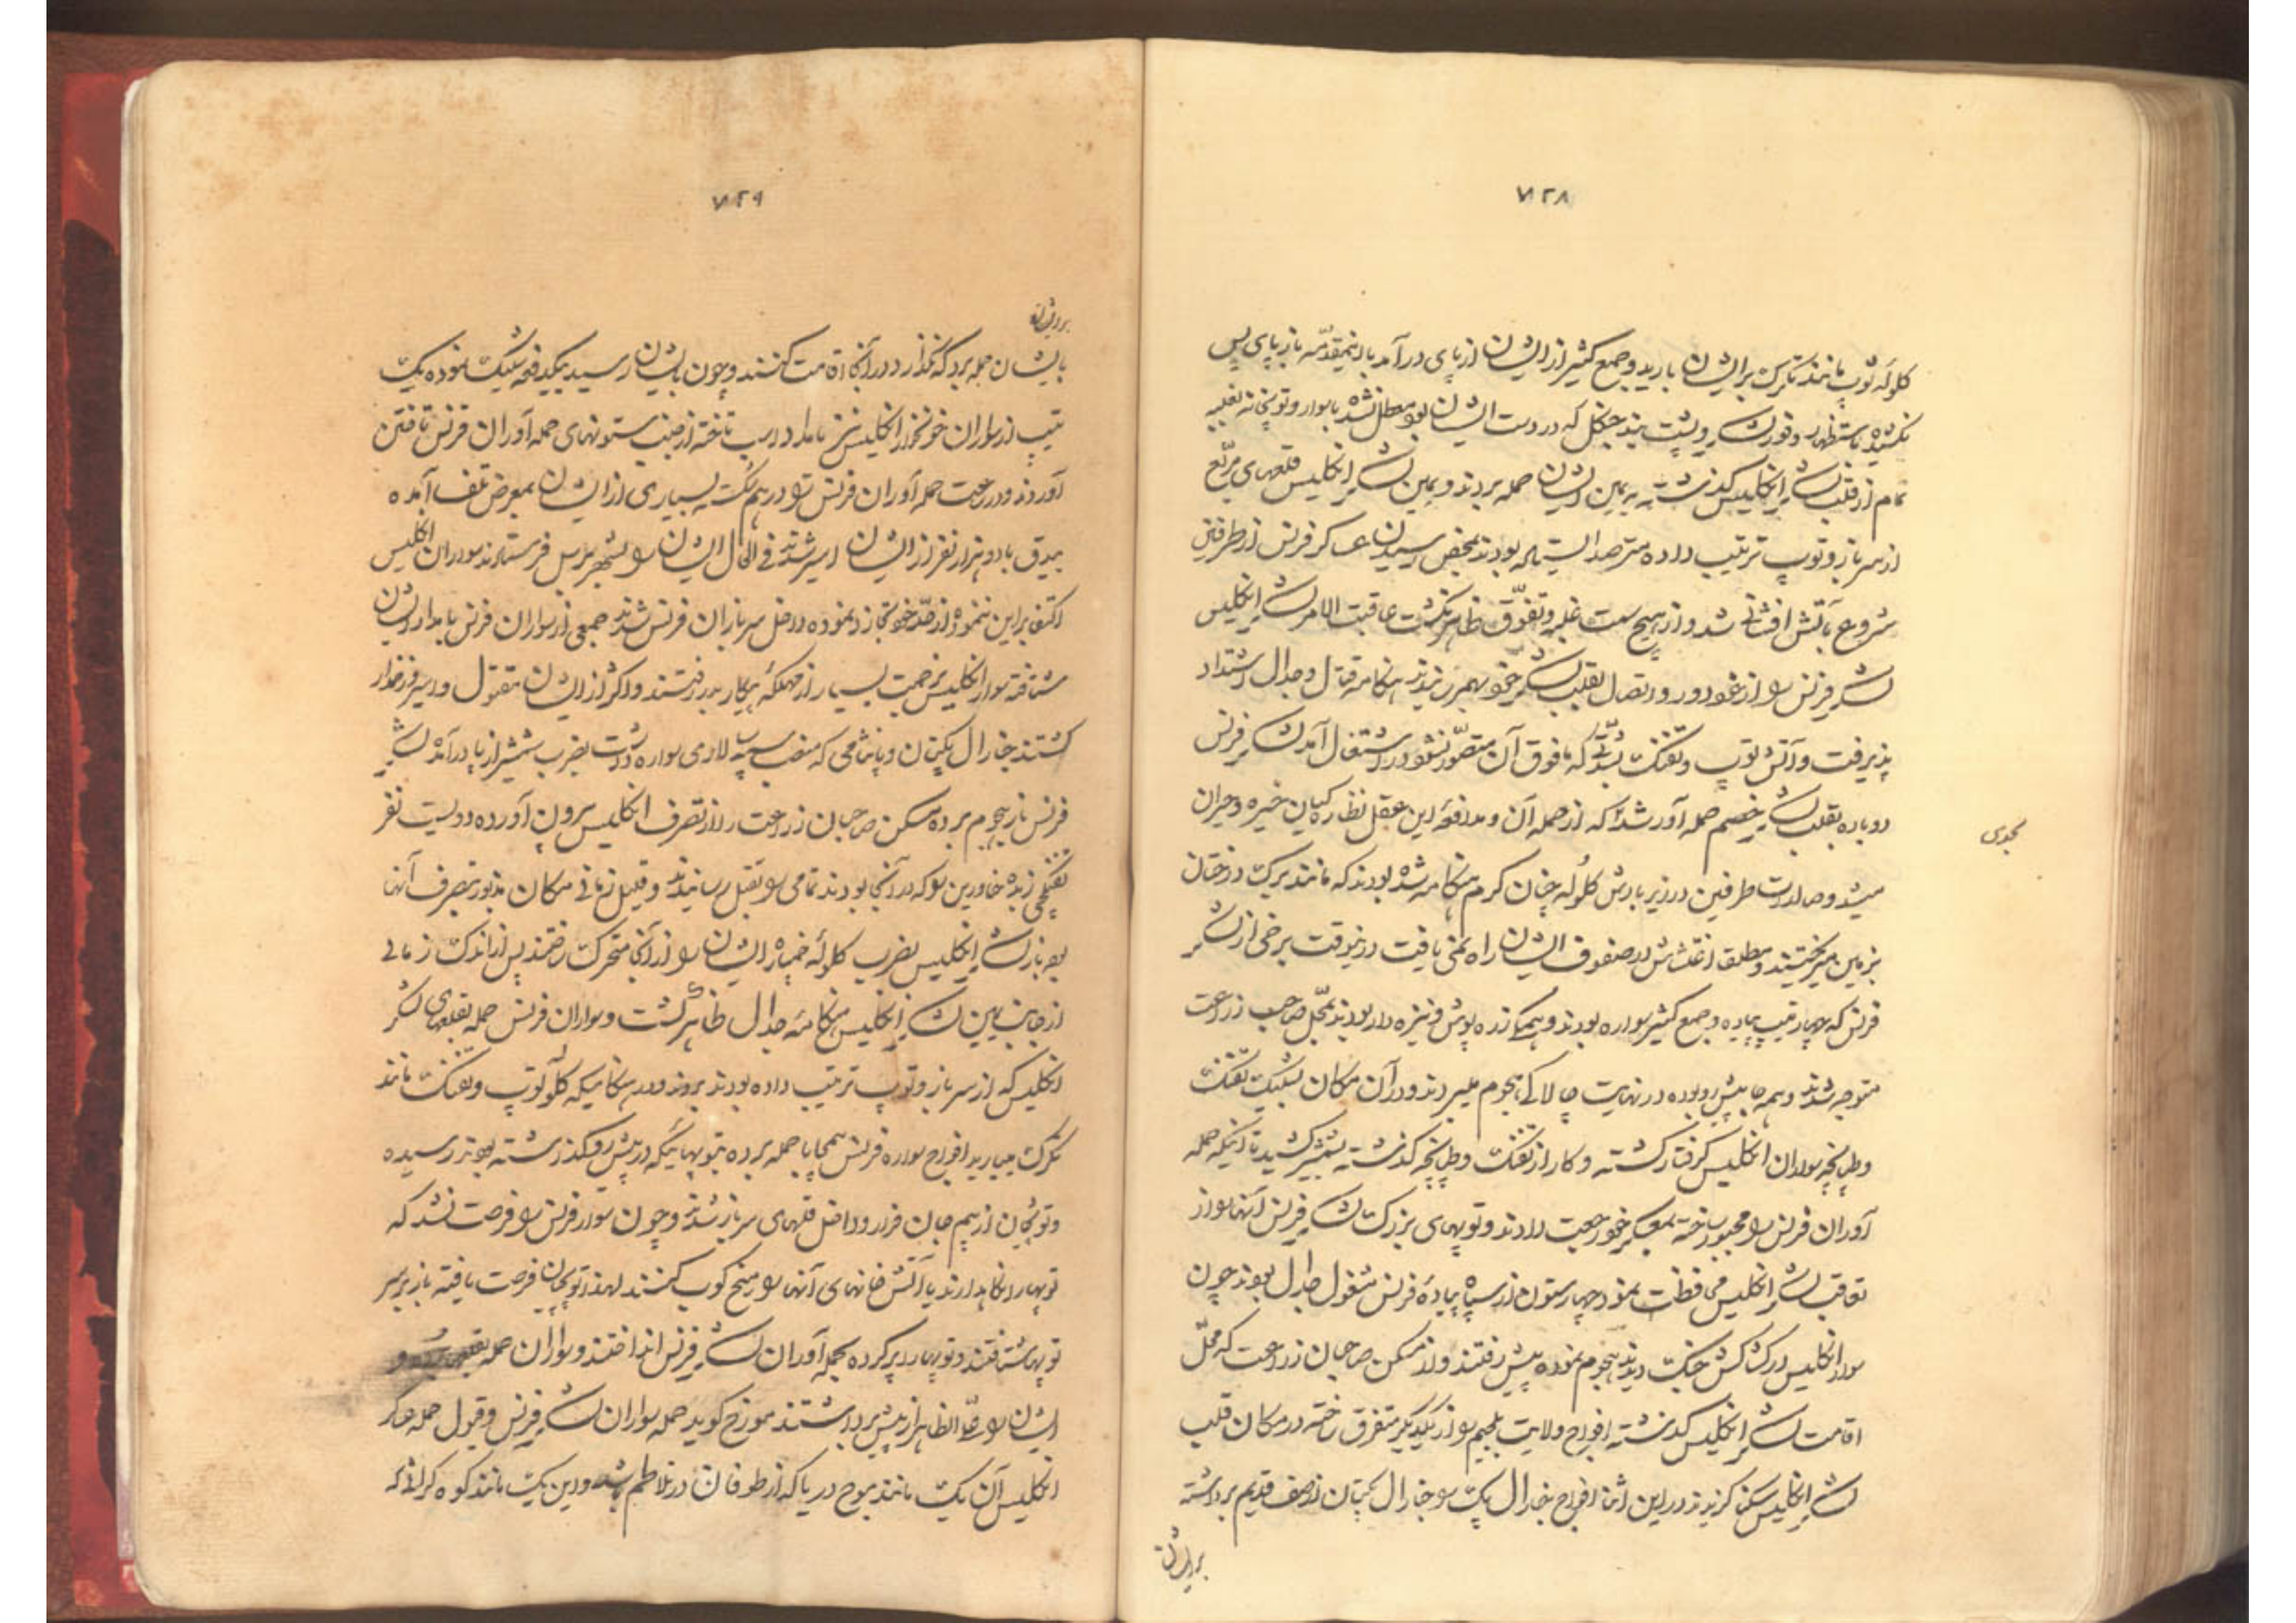 ۷۲۸
کلوله توپ مانند تکرک بر ایشان بارید و جمع کثیر از ایشان از پای در آمد با اینمقدمه باز پای پس
نکشیده باستظهار وفور لشکر و پشت بند جنکل که در دست ایشان بود معطل نشده با سوار و توپخانه
تمام از قلب لشکر انکلیس کذشته به یمین ایشان حمله بردند و یمین لشکر انکلیس قلعهای مربع
از سرباز و توپ ترتیب داده مترصد ایستاده بودند بمحض رسیدن عساکر فرنس از طرفین
شروع بآتش افشانی شد و از هیچ سمت غلبه و تفوق ظاهر نکشت عاقبت الامر لشکر انکلیس
لشکر فرنس را از خود دور و اتصال بقلب لشکر خود بهم رسانیدند هنکامه قتال و جدال اشتداد
پذیرفت و آتش توپ و تفنک بشدتی که مافوق آن متصور نشود در اشتعال آمد لشکر فرنس
دوباره بقلب لشکر خصم حمله آور شد که از حمله آن و مدافعه این عقل نظارکیان خیره و حیران
میشد و صالدات طرفین در زیر بارش کلوله چنان کرم هنکامه شده بودند که مانند برک درختان
بزمین میریختند و مطلقا اغتشاش در صفوف ایشان راه نمی یافت درینوقت برخی از لشکر
فرنس که چهار تیپ پیاده و جمع کثیر سواره بودند و همکی زره پوش و نیزه دار بودند بمحل صاحب زراعت
متوجه شدند و همه جا پیش رو بوده در نهایت چالاکی هجوم میبردند و در آن مکان بشلیک تفنک
و طپانچه سواران انکلیس کرفتار کشته و کار از تفنک و طپانچه کذشته بشمشیر کشید تا اینکه حمله
آوران فرنس را مجبور ساخته بمعسکر خود رجعت دادند و توپهای بزرک لشکر فرنس آنها را از
تعاقب لشکر انکلیس محافظت نمود چهار ستون از سپاه پیاده فرنس مشغول جدال بودند چون
سوار انکلیس را در کشاکش جنک دیدند هجوم نموده پیش رفتند و از مسکن صاحبان زراعت که محل
اقامت لشکر انکلیس کذشته افواج ولایت بلجیم را از یکدیکر متفرق ساخته در مکان قلب
لشکر انکلیس سکنا کزیدند در این اثنا افواج جنارال پک را جنارال پکتان از صف قدیم برداشته
بر ایشان
۷۲۹
بایشان حمله برد که نکذارد در آنجا اقامت کنند و چون بایشان رسید بیکدفعه شلیک نموده یک
تیپ از سواران خونخوار انکلیس نیز بامداد اسب تاخته از جنب ستونهای حمله آوران فرنس تاختن
آوردند و در رجعت حمله آوران فرنس را در هم شکسته بسیاری از ایشان بمعرض تلف آمده
بیدق با دو هزار نفر از ایشان اسیر شدند فی الحال ایشان را بشهر برسل فرستادند سواران انکلیس
اکتفا بر این ننموده از حد خود تجاوز نموده داخل سربازان فرنس شدند جمعی از سواران فرنس بامداد ایشان
شتافته سوار انکلیس بزحمت بسیار از مهلکه پیکار بدر رفتند و اکثر از ایشان مقتول و اسیر و زخمدار
کشتند جنارال پکتان و پانثامی که منصب سپه سالاری سواره داشت بضرب شمشیر از پا درآمد لشکر
فرنس باز هجوم برده مسکن صاحبان زراعت را از تصرف انکلیس برون آورده دویست نفر
تفنکچی زبده خاورین را که در آنجا بودند تمامی را بقتل رسانیدند و قلیل زمانی مکان مذبور بتصرف آنها
بود باز لشکر انکلیس بضرب کلوله خمپاره ایشان را از آنجا متحرک ساختند پس از اندک زمانی
از جانب یمین لشکر انکلیس هنکامه جدال ظاهر کشت و سواران فرنس حمله بقلعهای لشکر
انکلیس که از سرباز و توپ ترتیب داده بودند بردند و در هنکامیکه کلوله توپ و تفنک مانند
تکرک میبارید افواج سواره فرنس بیمحابا حمله برده بتوپهائیکه در پیش رو کذاشته بودند رسیده
و توپچیان از بیم جان فرار و داخل قلعهای سرباز شدند و چون سوار فرنس را فرصت نشد که
توپها را نکاهدارند یا آتش خانهای آنها را میخ کوب کنند لهذا توپچیان فرصت یافته باز بر سر
توپها شتافتند و توپها را پر کرده بحمله آوران لشکر فرنس انداختند و سواران حمله
ایشان را علی الظاهر از پیش برداشتند مورخ کوید حمله سواران لشکر فرنس و قبول حمله عساکر
انکلیس آن یک مانند موج دریا که از طوفان در تلاطم باشد و این یک مانند کوه کران که